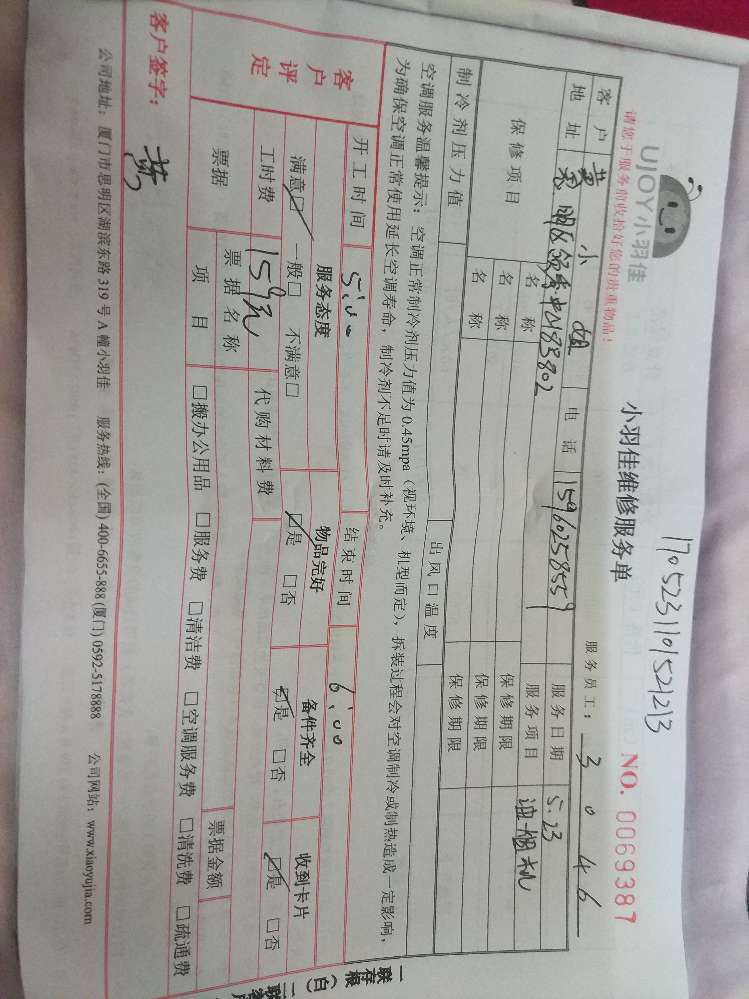 1705231101521213
UJOY小羽佳
小羽佳维修服务单
NO. 0069387
请您于服务前收拾好您的贵重物品！
服务员工：3046
客户 黄小姐 电话 15960258559 服务日期 5.23
地址 思明区 服务项目 油烟机
保修项目 名称 保修期限
名称 保修期限
名称 保修期限
制冷剂压力值 出风口温度
空调服务温馨提示：空调正常制冷剂压力值为0.45mpa（视环境、机型而定），拆装过程会对空调制冷或制热造成一定影响，
为确保空调正常使用延长空调寿命，制冷剂不足时请及时补充。
开工时间 5:00 结束时间 6:00
客户评定 服务态度 物品完好 备件齐全 收到卡片
满意☑ 一般□ 不满意□ ☑是 □否 ☑是 □否 ☑是 □否
工时费 159元 代购材料费
票据 票据名称 票据金额
项目 □搬办公用品 □服务费 □清洁费 □空调服务费 □清洗费 □疏通费
客户签字：黄
公司地址：厦门市思明区湖滨东路319号A幢小羽佳 服务热线：(全国) 400-6655-888 (厦门) 0592-5178888 公司网站：www.xiaoyujia.com
一联存根（白）二联客